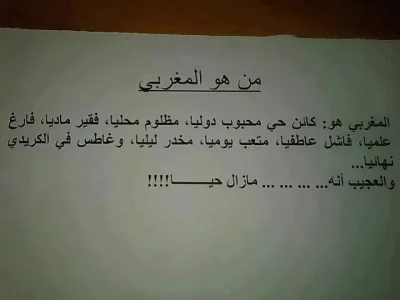 من هو المغربي
المغربي هو: كائن حي محبوب دوليا، مظلوم محليا، فقير ماديا، فارغ
علميا، فاشل عاطفيا، متعب يوميا، مخدر ليليا، وغاطس في الكريدي
نهائيا...
والعجيب أنه... ... ... ... مازال حيــــــا!!!!